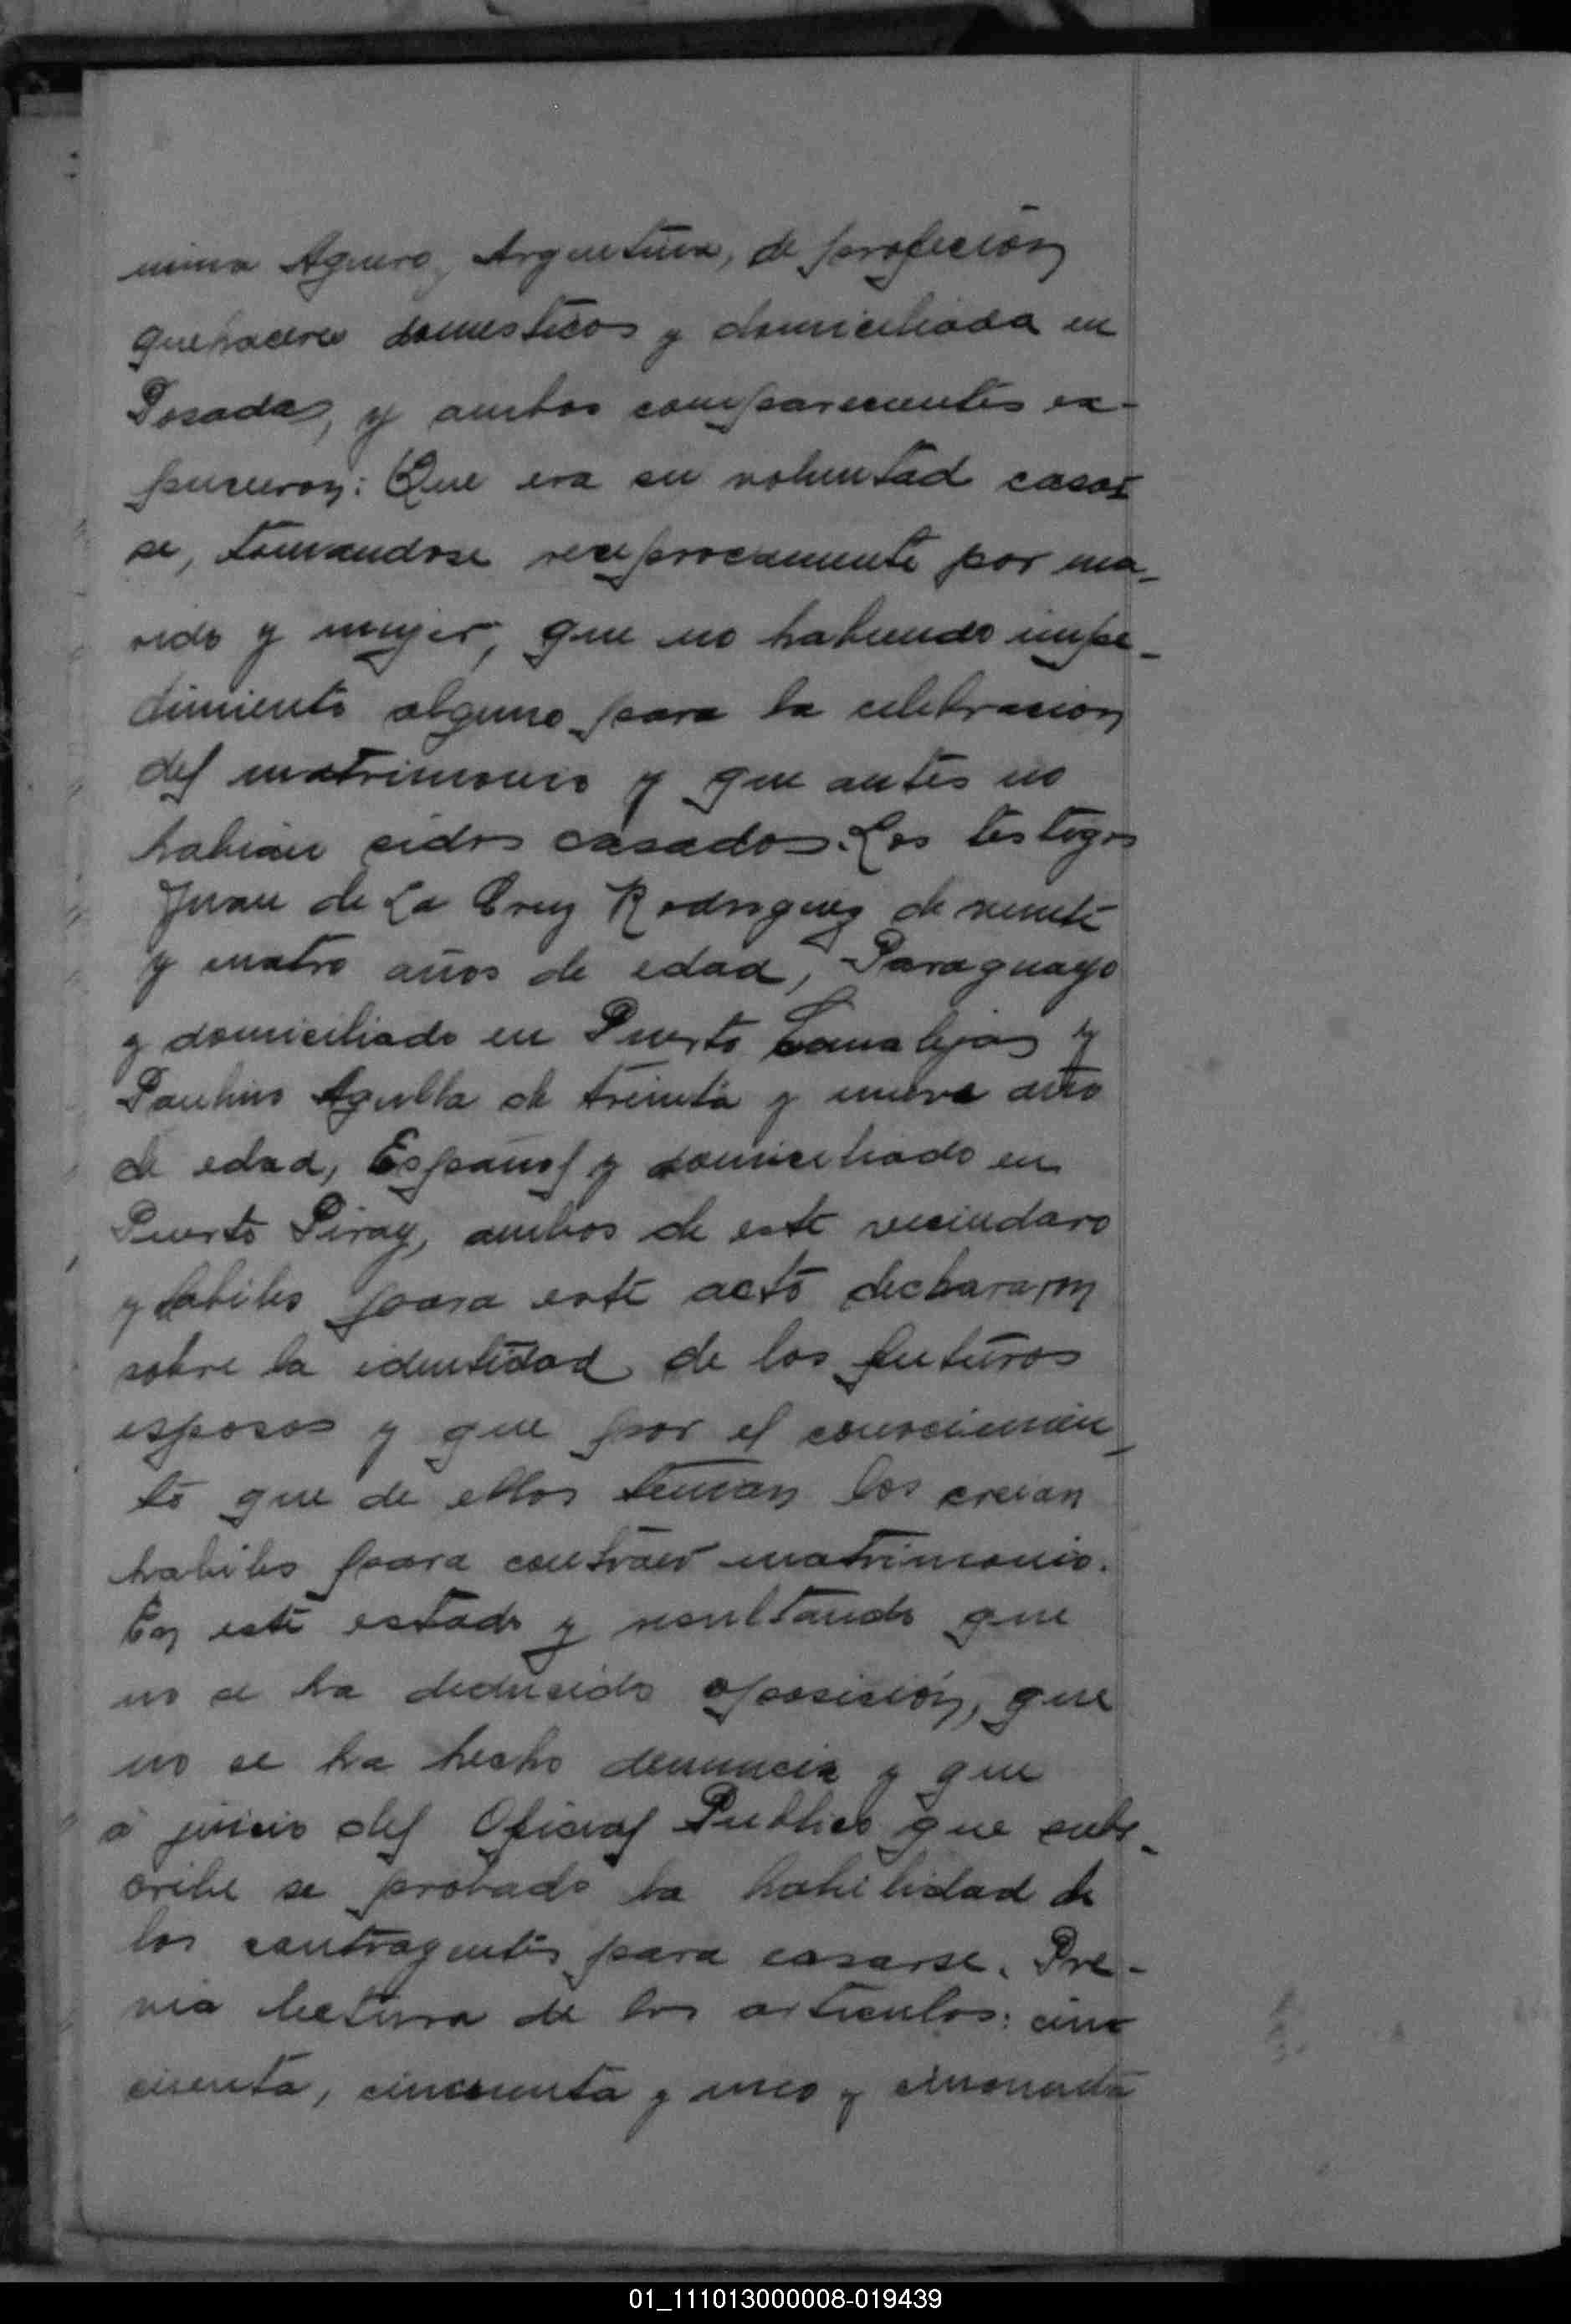 mina Aguero, Argentina, de profecion
quehaceres domesticos y domiciliada en
Posadas, y ambos comparecientes ex-
pucieron: Que era su voluntad casar
se, tomandose reciprocamente por ma-
rido y mujer, que no habiendo impe-
dimiento alguno para la celebracion
del matrimonio y que antes no
habian sidos casados. Los testigos
Juan de La Cruz Rodriguez de veinte
y cuatro años de edad, Paraguayo
y domiciliado en Puerto Canalejas y
Paulino Agulla de treinta y nueve año
de edad, Español y domiciliado en
Puerto Piray, ambos de este vecindaro
y habiles para este acto declararon
sobre la identidad de los futuros
esposos y que por el conocimien-
to que de ellos tenian los creian
habiles para contraer matrimonio.
En este estado y resultando que
no se ha deducido oposición, que
no se ha hecho denuncia y que
a juicio del Oficial Publico que subs-
cribe se probado la habilidad de
los contragentes para casarse. Pre-
via lectura de los articulos: cinc
cuenta, cincuenta y uno y cincuenta
01_111013000008-019439